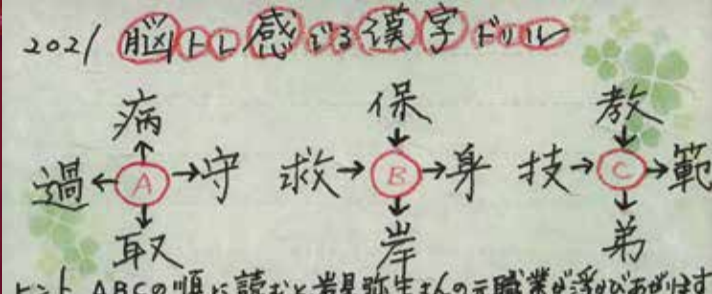 2021 脳トレ感じる漢字ドリル
病 保 教
過←A→守 救→B→身 技→C→範
取 岸 弟
ヒント ABCの順に読むと岩見弥生さんの元職業が浮かびあがります